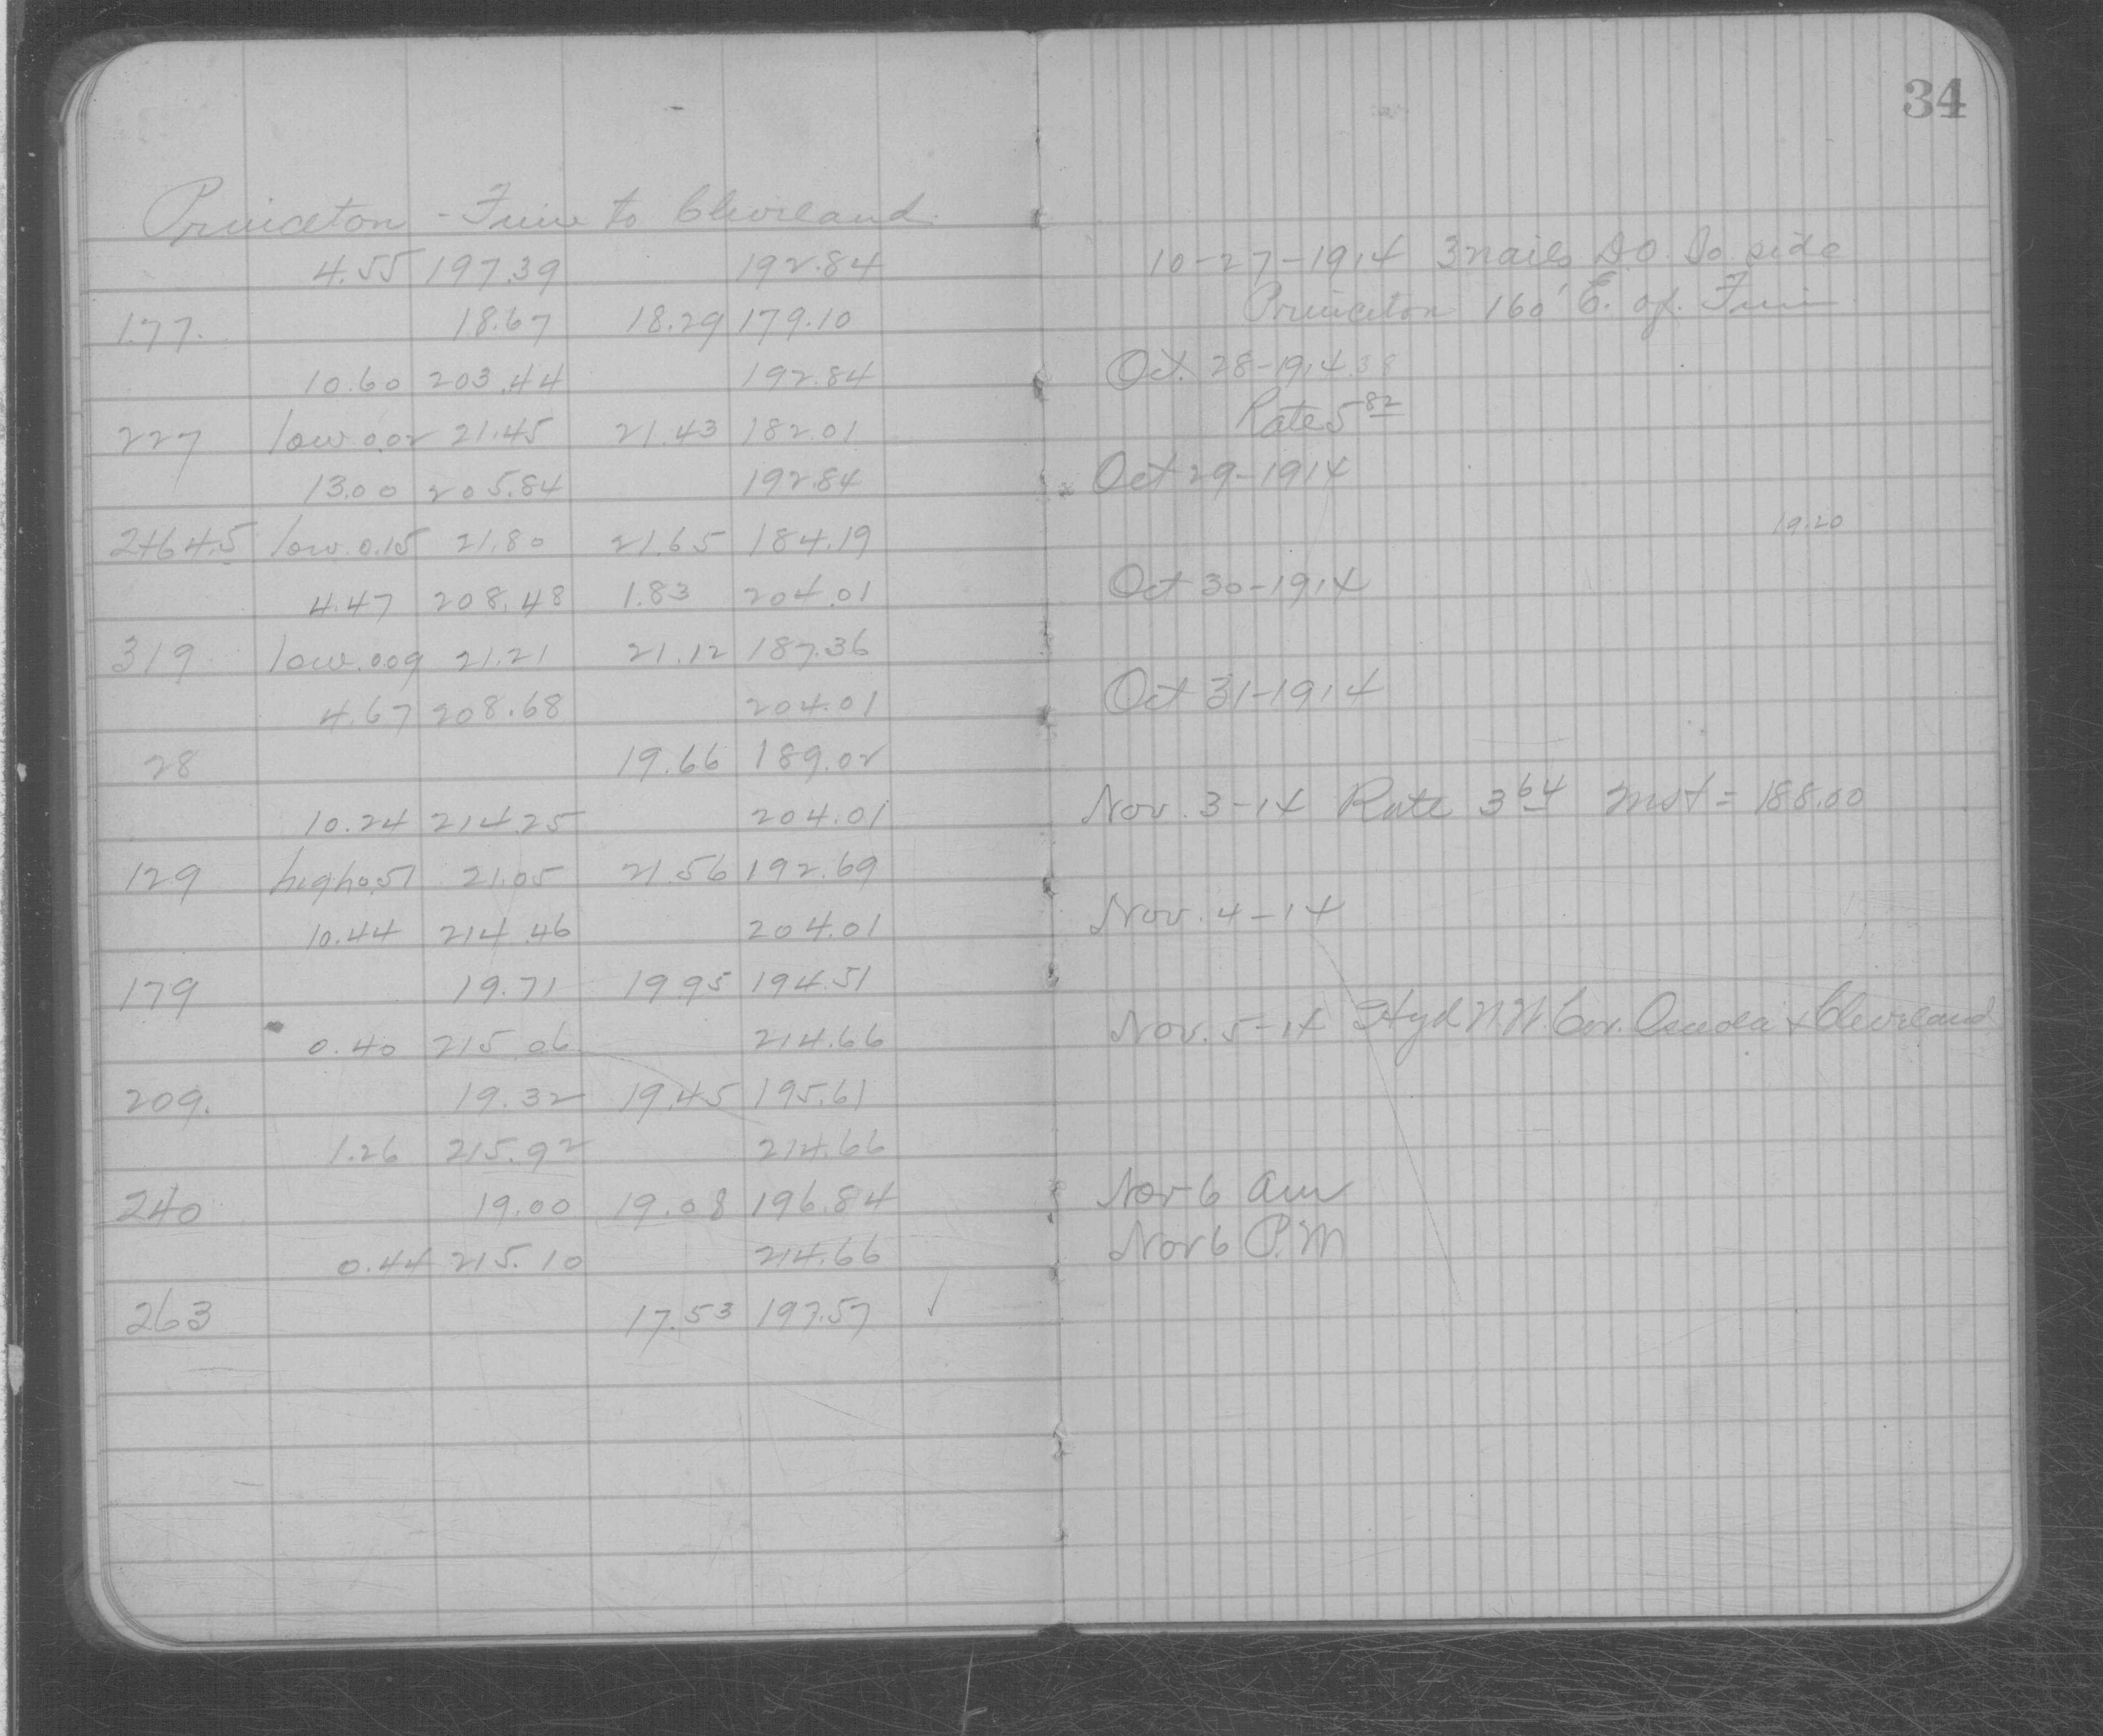 34
Princeton - Train to Cleveland.
4.55 197.39 192.84
177. 18.67 18.29 179.10
10.60 203.44 192.84
227 low 0.02 21.45 21.43 182.01
13.00 205.84 192.84
2+64.5 low 0.15 21.80 21.65 184.19
4.47 208.48 1.83 204.01
319 low .009 21.21 21.12 187.36
4.67 208.68 204.01
28 19.66 189.02
10.24 214.25 204.01
129 high 0.51 21.05 21.56 192.69
10.44 214.46 204.01
179 19.71 19.95 194.51
0.40 215.06 214.66
209. 19.32 19.45 195.61
1.26 215.92 214.66
240 19.00 19.08 196.84
0.44 215.10 214.66
263 17.53 197.57 ✓
10-27-1914 3 nails So. side
Princeton 160' E. of
Oct. 28-1914.38
Rate 5 82
Oct 29-1914
19.20
Oct 30-1914
Oct 31-1914
Nov. 3-14 Rate 3 64 Inst = 188.00
Nov. 4-14
Nov. 5-14 Hyd N W Cor. & Cleveland
Nov 6 am
Nov 6 P.M